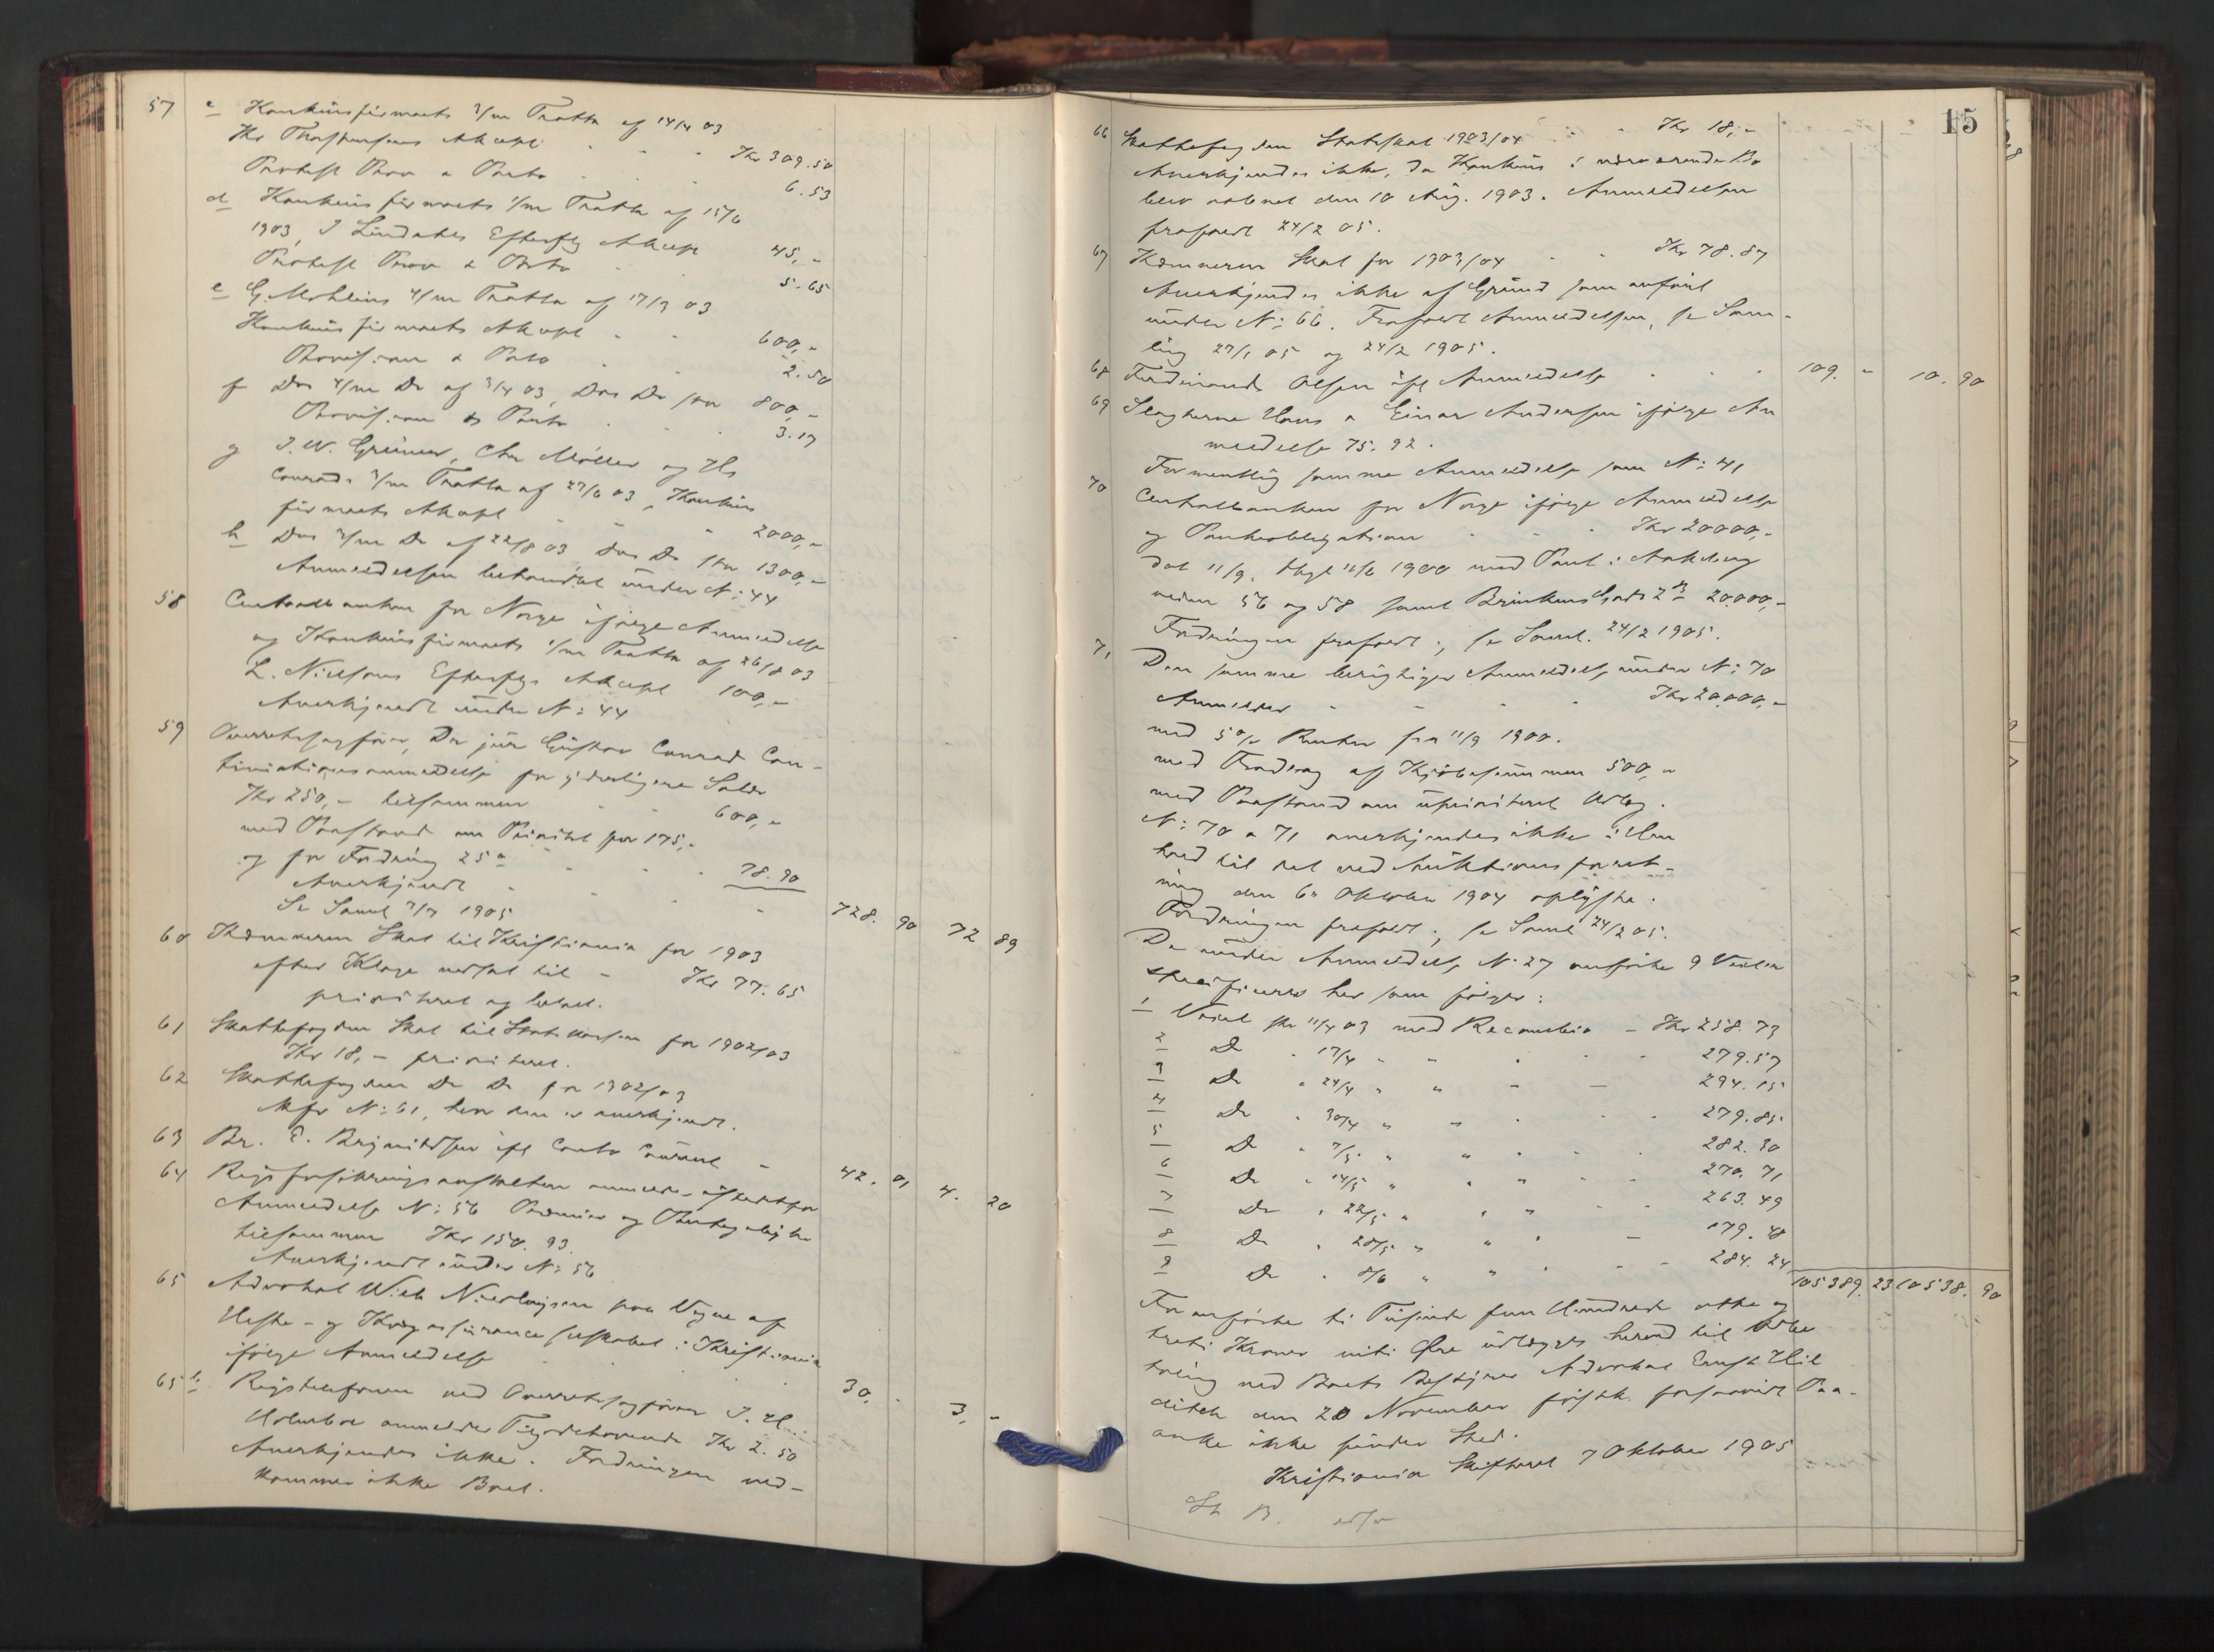 57 c Konkursfirmaets 3/m Tratta af 14/4 03
Hr Thorstensens Akcept Kr 309.50
Protest Prov & Porto 6.53
d Konkursfirmaets 1/m Tratta af 15/6
1903, I Lindahls Efterflg Akcept 45,-
Protest Prov & Porto 5.65
e G. Mohlins 4/m Tratta af 17/3 03
Konkursfirmaets Akcept 600,-
Provision & Porto 2.50
f Dos 4/m Do af 3/4 03, Dos Do for 800,-
Provision & Porto 3.17
g I. W. Grüner, Chr Møller og Hs
Conrads 3/m Tratta af 27/6 03, Konkurs
firmaets Akcept 2000,-
h Dos 3/m Do af 22/8 03 Dos Do stor 1300,-
Anmeldelsen behandlet under N: 44
58 Centralbanken for Norge ifølge Anmeldelse
og Konkursfirmaets 1/m Tratta af 26/8 03
L. Nielsens Efterflgs Akcept 100,-
Anerkjendt under N: 44
59 Overretssagfører, Dr jur Gustav Conrad Con-
tinuationsanmeldelse for yderligere Salær
Kr 250,- tilsammen 600,-
med Paastand om Prioritet for 175,-
og for Fordring 25 a 78.90
Anerkjendt
Se Saml 3/7 1905 728. 90 72 89
60 Kæmneren Skat til Kristiania for 1903
efter Klage nedsat til - Kr 77.65
prioriteret og betalt.
61 Skattefogden Skat til Statskassen for 1902/03
Kr 18,- prioriteret.
62 Skattefogden Do Do for 1902/03
Kfr N: 61, hvor den er anerkjendt.
63 Br. E. Brynildsen ifl Conto Courant - 42. 01 4. 20
64 Rigsforsikringsanstalten anmelder istedetfor
Anmeldelse N: 56 Præmier og Panteafgifter
tilsammen Kr 150. 93.
Anerkjendt under N: 56
65 Advokat Wilh Nicolaysen paa Vegne af
Heste- og Kvægassuranceselskabet i Kristiania
ifølge Anmeldelse 30, - 3, -
65 b Rigstelefonen ved Overretssagfører I. H.
Holmboe anmelder Tilgodehavende Kr 2.50
Anerkjendes ikke. Fordringen ved-
kommer ikke Boet.
15
66 Skattefogden Statsskat 1903/04 - Kr 18,-
Anerkjendes ikke, da Konkurs i nærværende Bo
blev aabnet den 10 Aug. 1903. Anmeldelsen
frafaldt 24/2 05.
67 Kæmneren Skat for 1903/04 - Kr 78.57
Anerkjendes ikke af Grund som anført
under N: 66. Frafaldt Anmeldelsen, se Sam-
ling 27/1 05 og 24/2 1905.
68 Ferdinand Olsen ifl Anmeldelse 109. - 10. 90
69 Slagterne Hans & Einar Andersen ifølge An
meldelse 75.92.
Formentlig samme Anmeldelse som N: 41
70 Centralbanken for Norge ifølge Anmeldelse
og Panteobligation Kr 20000,-
dat 11/9, thgl 1900 med Pant i Akersveien
veien 56 og 58 samt Brinkens Gade 20000,-
Fordringen frafaldt; se Saml. 24/2 1905.
71 Den samme berigtiger Anmeldelse under N: 70
Anmelder - Kr 20,000,-
med 5 % Renter fra 11/9 1900.
med Fradrag af Kjøbesummen 500,-
med Paastand om uprioriteret Udlæg.
N: 70 & 71 anerkjendes ikke i Hen
hold til det ved Auktionsforret-
ning den 6te Oktober 1904 oplyste.
Fordringen frafaldt; se Saml 24/2 05.
De under Anmeldelse N: 27 anførte 9 Vexler
specificeres her som følger:
1 Vexel pr 11/4 03 med Recambio - Kr 258.73
2 Do - 17/4 - 279.57
3 Do - 24/4 - 294.15
4 Do - 30/4 - 279.85
5 Do - 7/5 - 282.30
6 Do - 14/5 - 270.71
7 Do - 22/5 - 263.49
8 Do - 28/5 - 179.48
9 Do - 5/6 - 284.24
105389. 23 10538. 90
Foranførte ti Tusinde fem Hundrede otte og
treti Kroner niti Øre udlægges herved til Udbe
taling ved Boets Bestyrer Advokat Ernst Hil
ditch den 20 November førstk. forsaavidt Paa-
anke ikke finder Sted.
Kristiania Skifteret 7 Oktober 1905